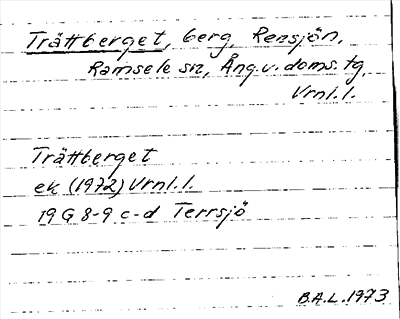 Trättberget, berg, Rensjön,
Ramsele sn, Ång.v. doms. tg,
Vrnl.l.
Trättberget
ek (1972) Vrnl.l.
19 G 8-9 c-d Terrsjö
B.A.L. 1973